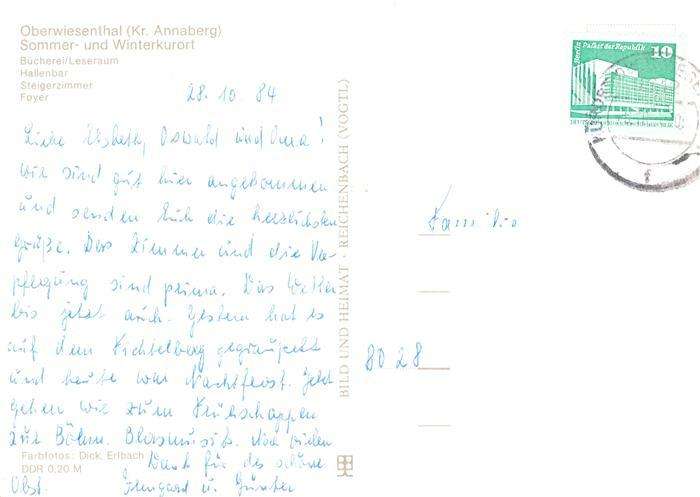 Oberwiesenthal (Kr. Annaberg)
Sommer- und Winterkurort
Bücherei/Leseraum
Hallenbar
Steigerzimmer
Foyer
28.10.84
Liebe Elsbeth, Oswald und Oma!
Wir sind gut hier angekommen
und senden Euch die herzlichsten
Grüße. Das Zimmer und die Ver-
pflegung sind prima. Das Wetter
bis jetzt auch. Gestern hat es
auf dem Fichtelberg gegraupelt
und heute war Nachtfrost. Jetzt
gehen wir zum Frühschoppen
zur Böhm. Blasmusik. Noch vielen
Dank für das schöne
Obst. Irmgard u. Günter
Farbfotos: Dick, Erlbach
DDR 0,20 M
BILD UND HEIMAT · REICHENBACH (VOGTL)
Berlin Palast der Republik 10
Familie
8028